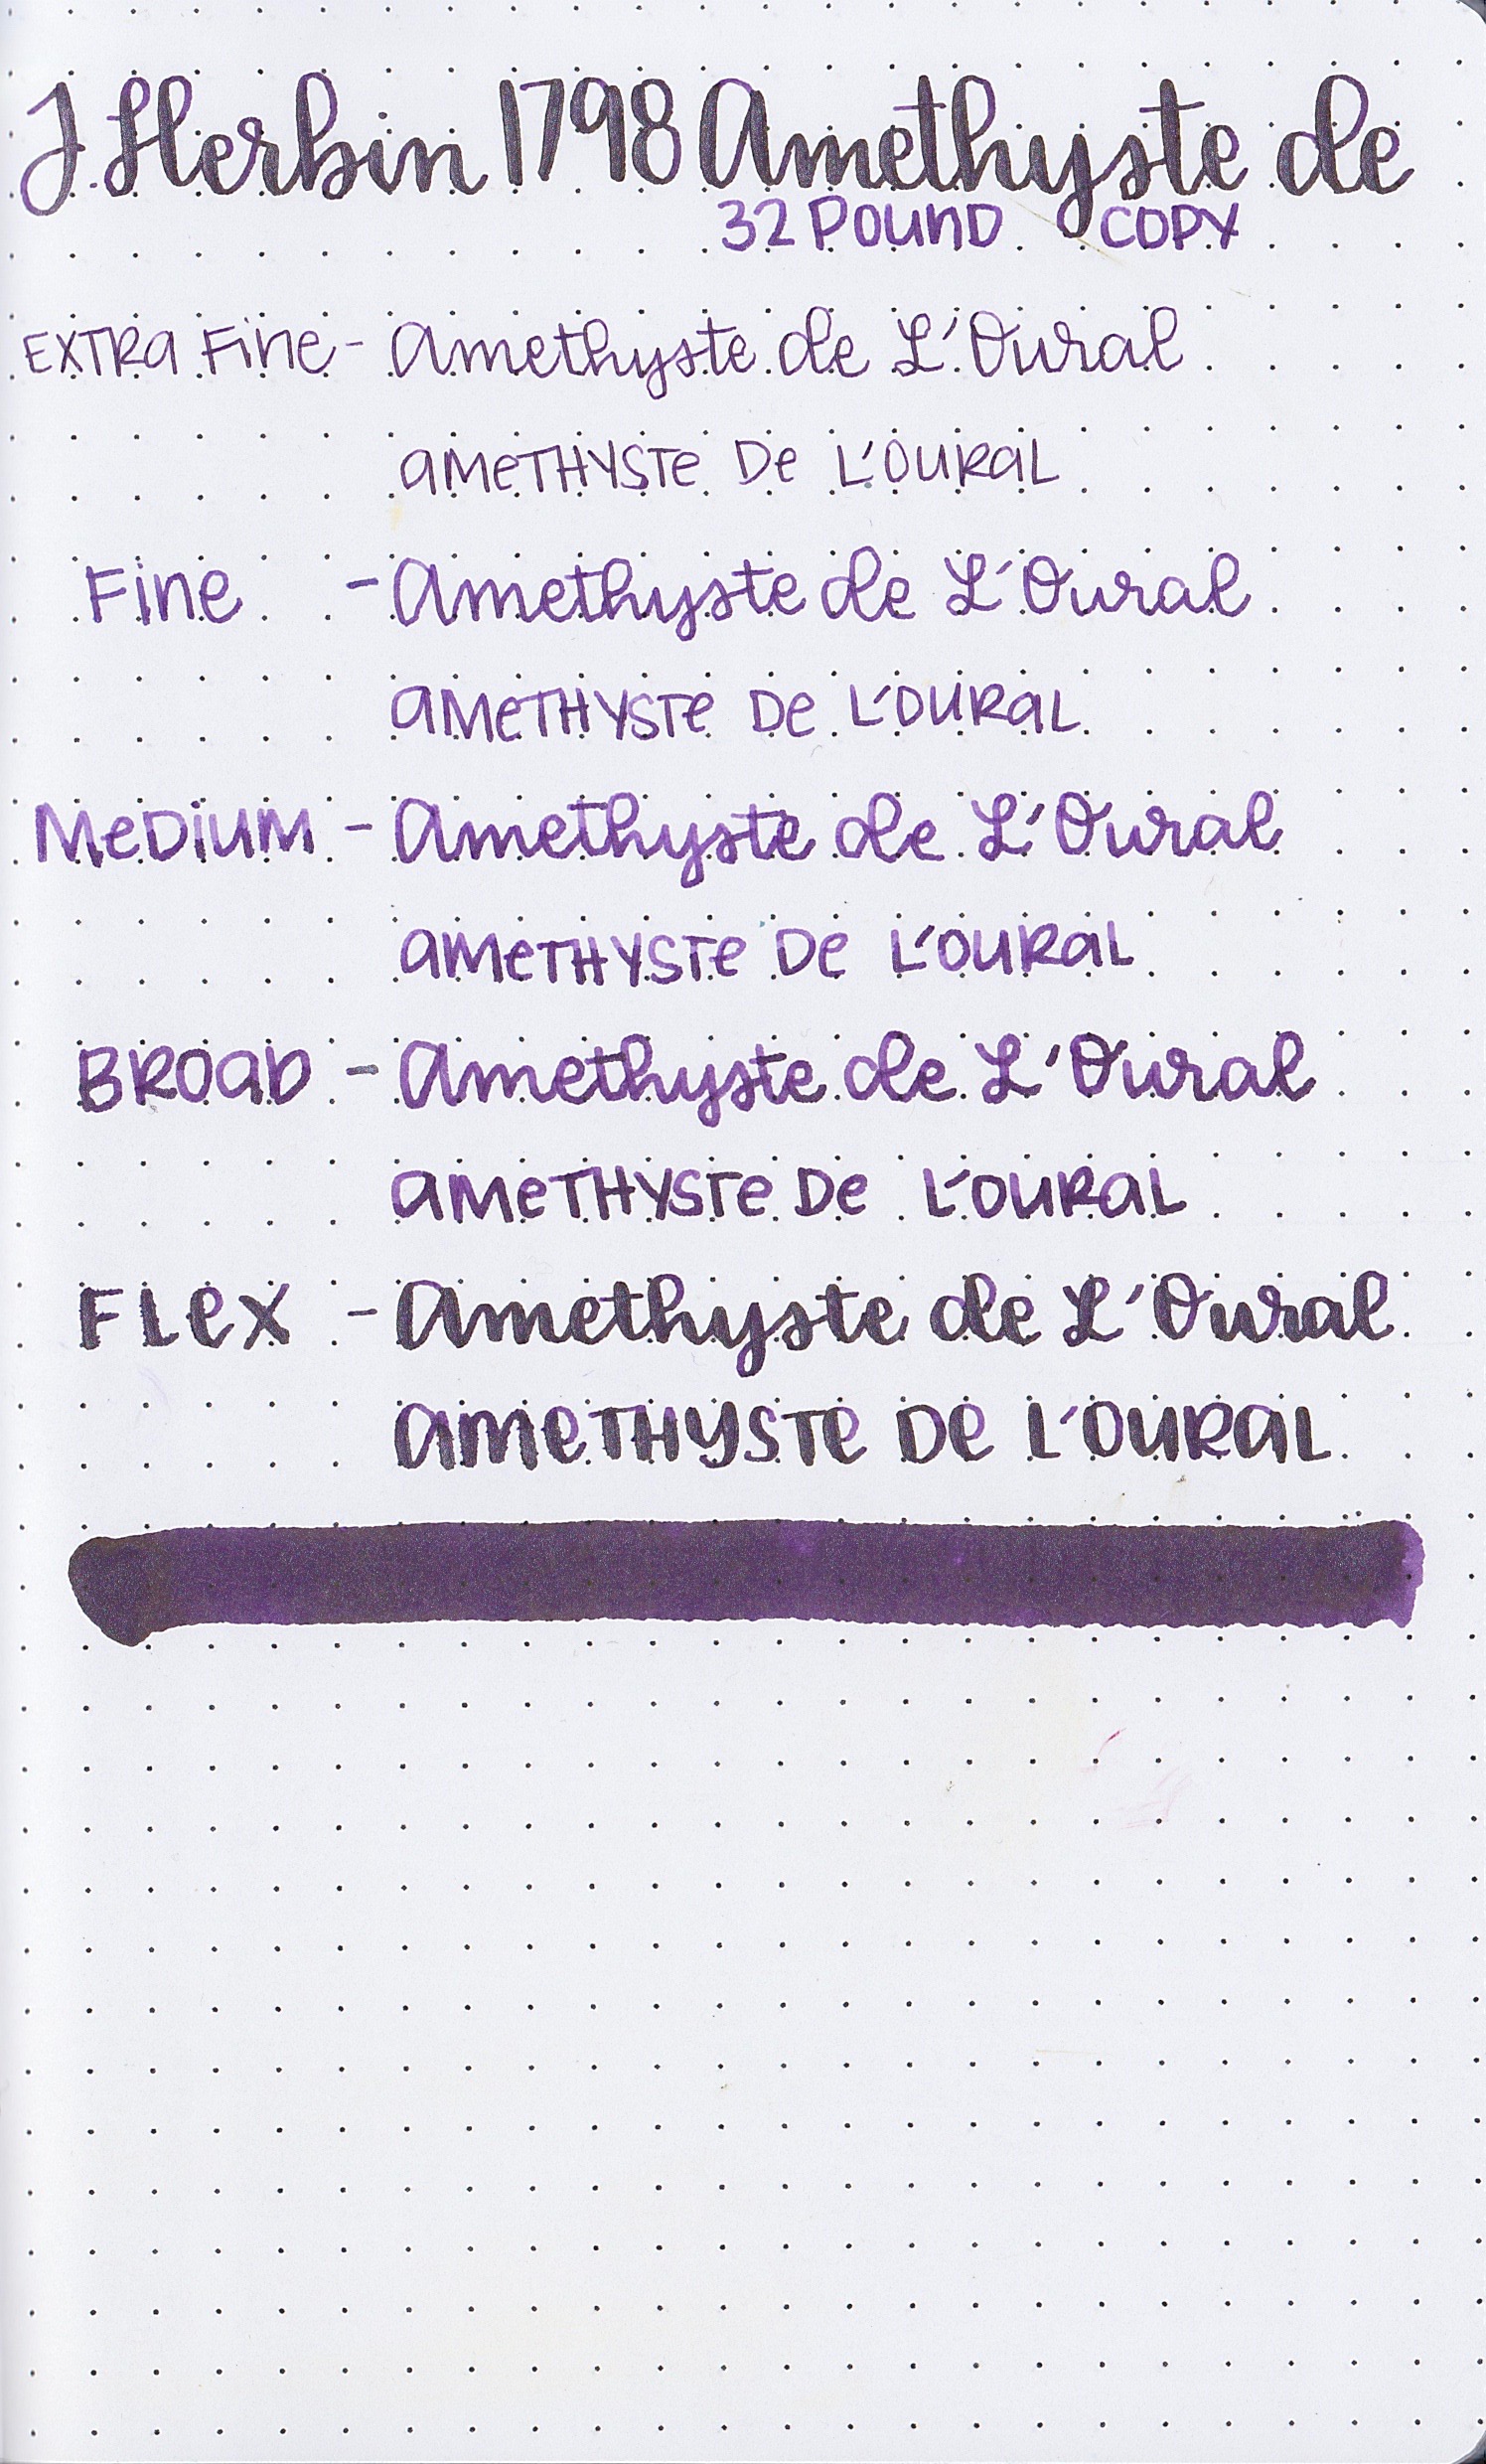 J Herbin 1798 Amethyste de
32 POUND COPY
EXTRA FINE - Amethyste de L'Oural
AMETHYSTE DE L'OURAL
FINE - Amethyste de L'Oural
AMETHYSTE DE L'OURAL
MEDIUM - Amethyste de L'Oural
AMETHYSTE DE L'OURAL
BROAD - Amethyste de L'Oural
AMETHYSTE DE L'OURAL
FLEX - Amethyste de L'Oural
AMETHYSTE DE L'OURAL